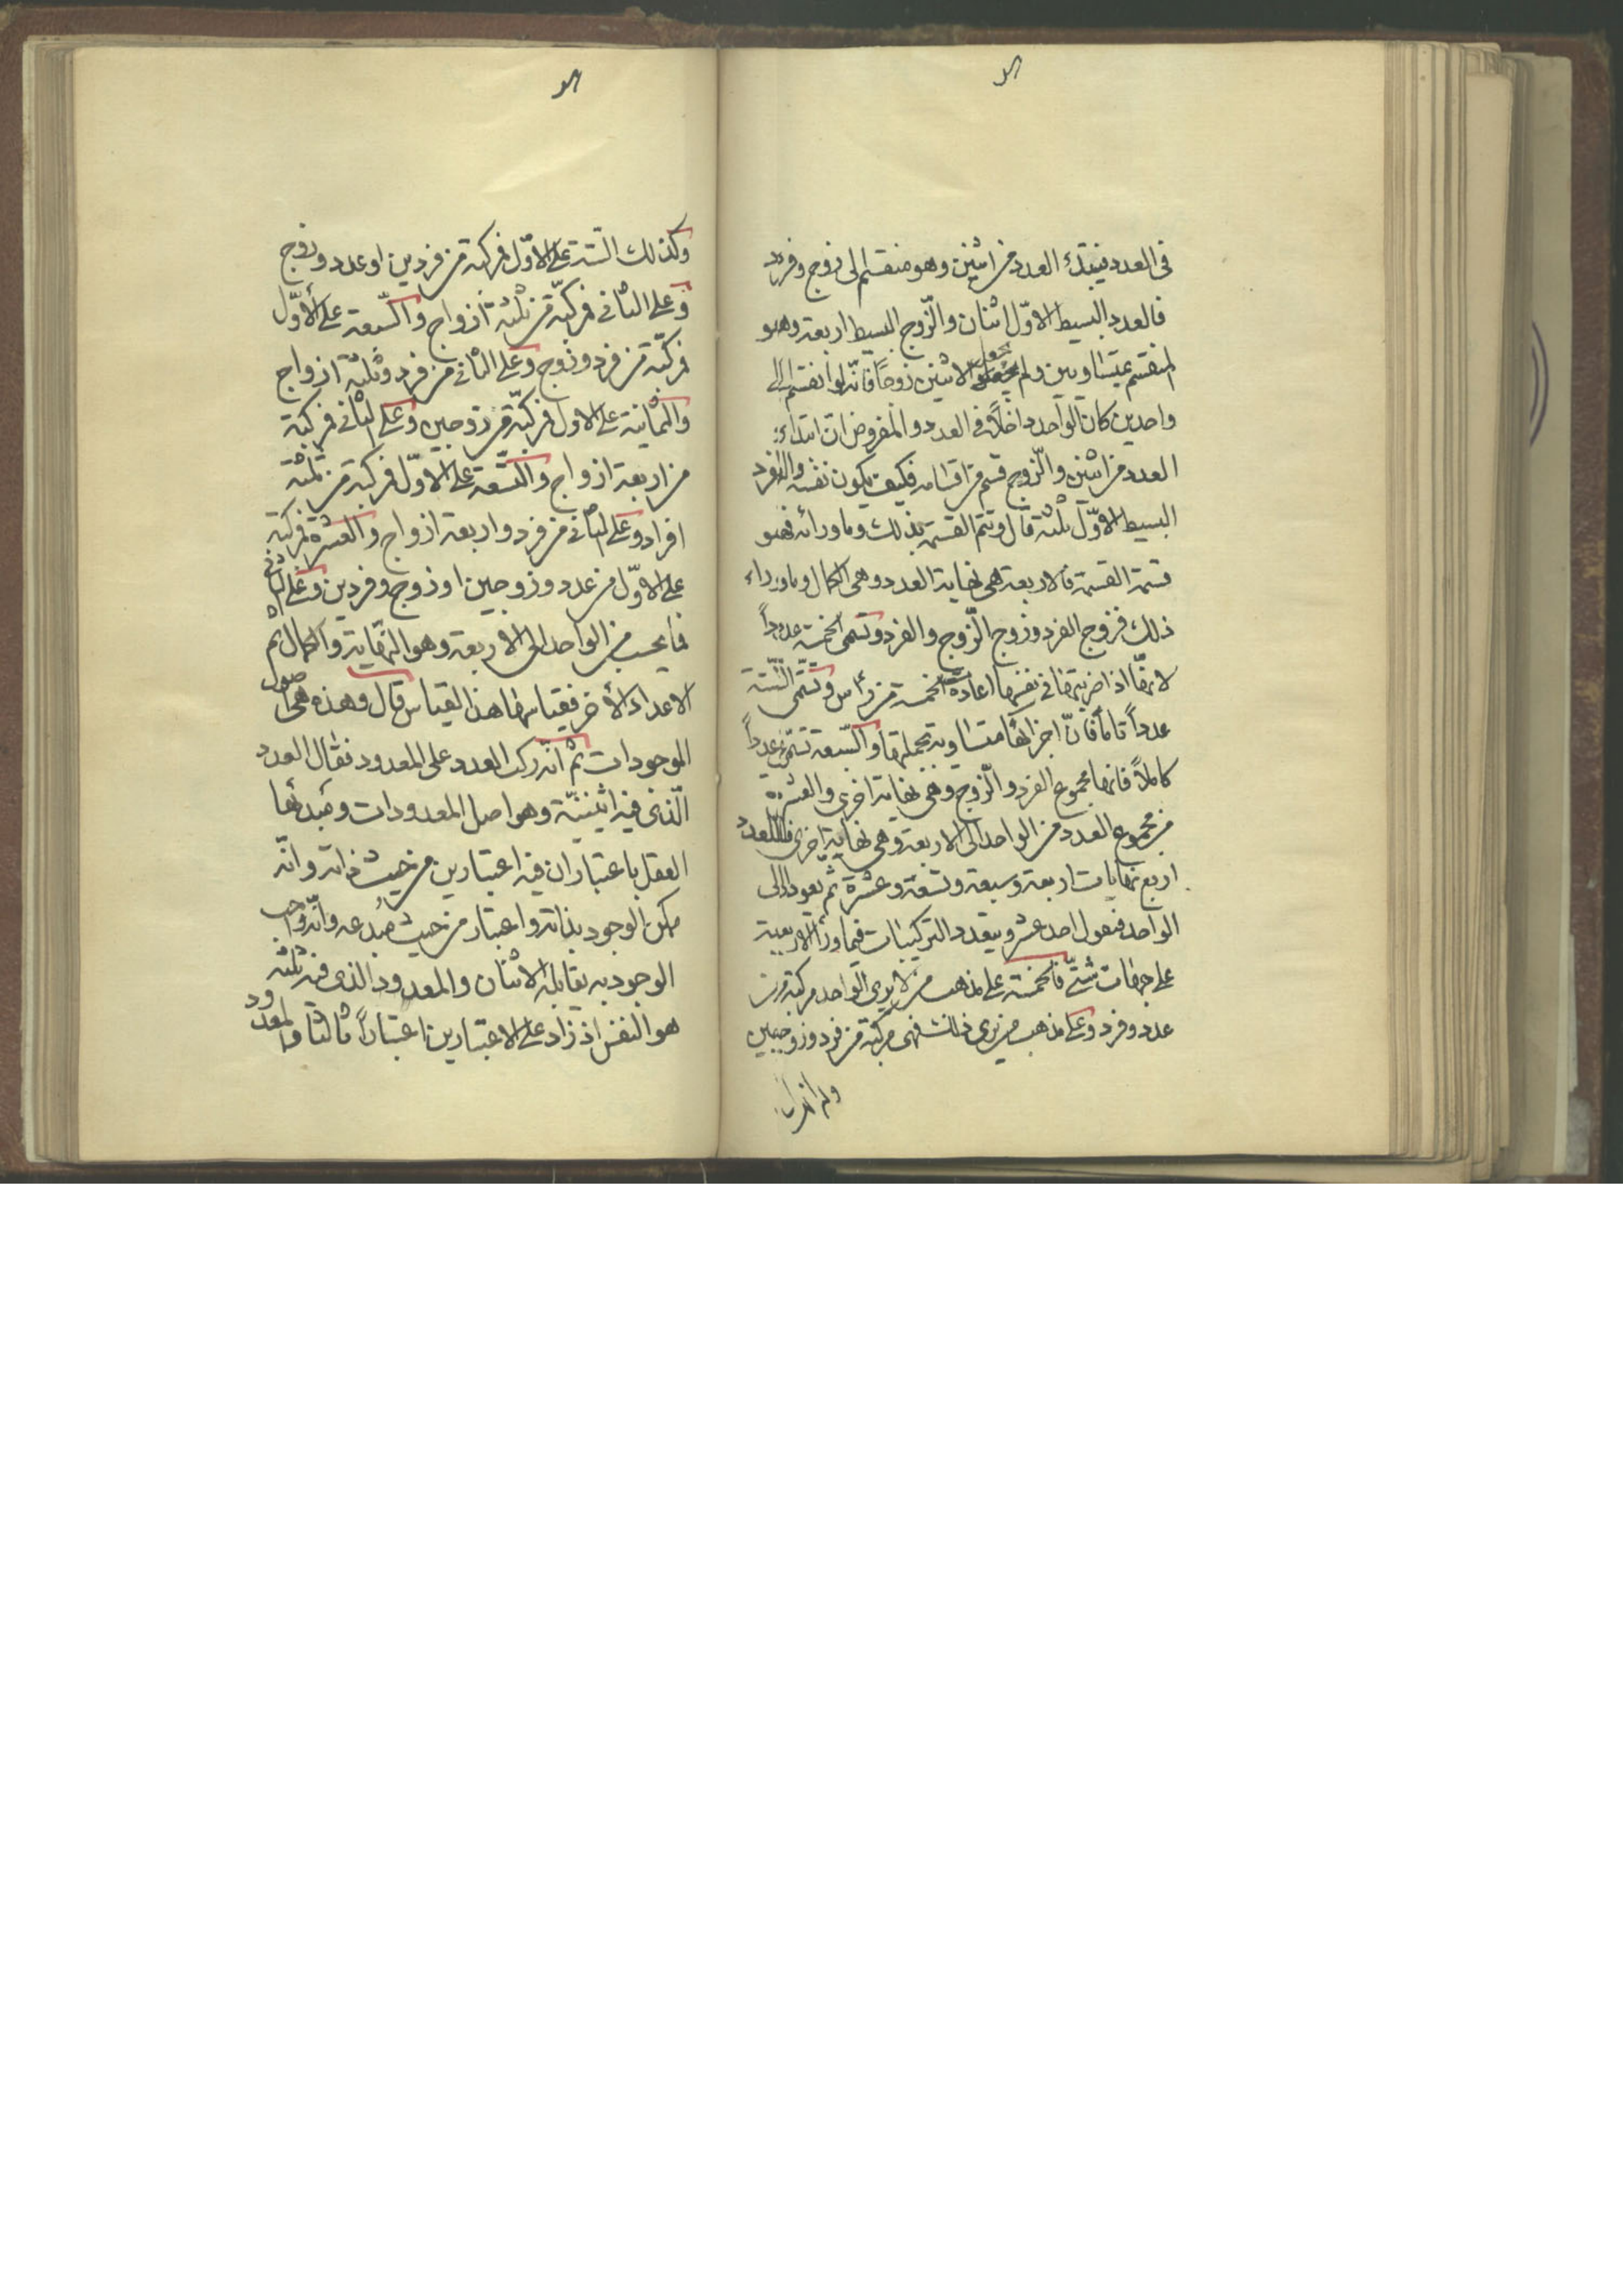 فى العدد فيبتدئ العدد من اثنين وهو منقسم الى زوج وفرد
فالعدد البسيط الاوّل اثنان والزّوج البسيط اربعة وهو
المنقسم بمتساويين ولم يجعل الاثنين زوجاً فانّه لوا نقسم الى
واحدين كان الواحد داخلاً فى العدد والمفروض ان ابتداء
العدد من اثنين والزّوج قسم من اقسامه فكيف يكون نفسه والفرد
البسيط الاوّل ثلثة قال وتتم القسمة بذلك وما ورائه فهو
قسمة القسمة فالاربعة هى نهاية العدد وهى الكمال وما وراء
ذلك فزوج الفرد وزوج الزّوج والفرد وتسمى الخمسة عدداً
لانهّا اذا ضربتها فى نفسها اعادت الخمسة من رأس وتسمّى الستّة
عدداً تامّاً فانّ اجزائها متساوية بجملتها والسّبعة تسمّى عدداً
كاملاً فانها مجموع الفرد والزّوج وهى نهاية اخرى والعشرة
من مجموع العدد من الواحد الى الاربعة وهى نهاية اخرى فللعدد
اربع نهايات اربعة وسبعة وتسعة وعشرة ثم يعود الى
الواحد فنقول احد عشر ويتعدد التركيبات فيما وراء الاربعة
على جهات شتّى فالخمسة على مذهب من لا يرى الواحد مركبة من
عدد وفرد وعلى مذهب من يرى ذلك فهى مركبة من فرد وزوجين
وكذلك الستة على الاوّل فمركبة من فردين او عدد وزوج
وعلى الثانى فمركبّة من ثلثة ازواج والسّبعة على الأوّل
فمركبّة من فرد وزوج وعلى الثانى من فرد وثلثة ازواج
والثمانية على الاول فمركبّة من زوجين وعلى الثانى فمركبة
من اربعة ازواج والتسّعة على الاوّل فمركبة من ثلثة
افراد وعلى الثانى من فرد واربعة ازواج والعشرة فمركبة
على الاوّل من عدد وزوجين او زوج وفردين وعلى الثانى
فما يحسب من الواحد الى الاربعة وهو النهّاية والكمال ثم
الاعداد الأخر فقياسها هذا القياس قال وهذه هى اصول
الموجودات ثم انّه ركب العدد على المعدود فقال العدد
الّذى فيه اثنينيّة وهو اصل المعدودات ومبدئها
العقل باعتبار ان فيه اعتبارين من حيث ذاته وانّه
ممكن الوجود بذاته واعتبار من حيث مبدعه وانّه واجب
الوجود به يقابله الاثنان والمعدود الذى فيه ثلثة
هو النفس اذ زاد على الاعتبارين اعتباراً ثالثا والمعدود